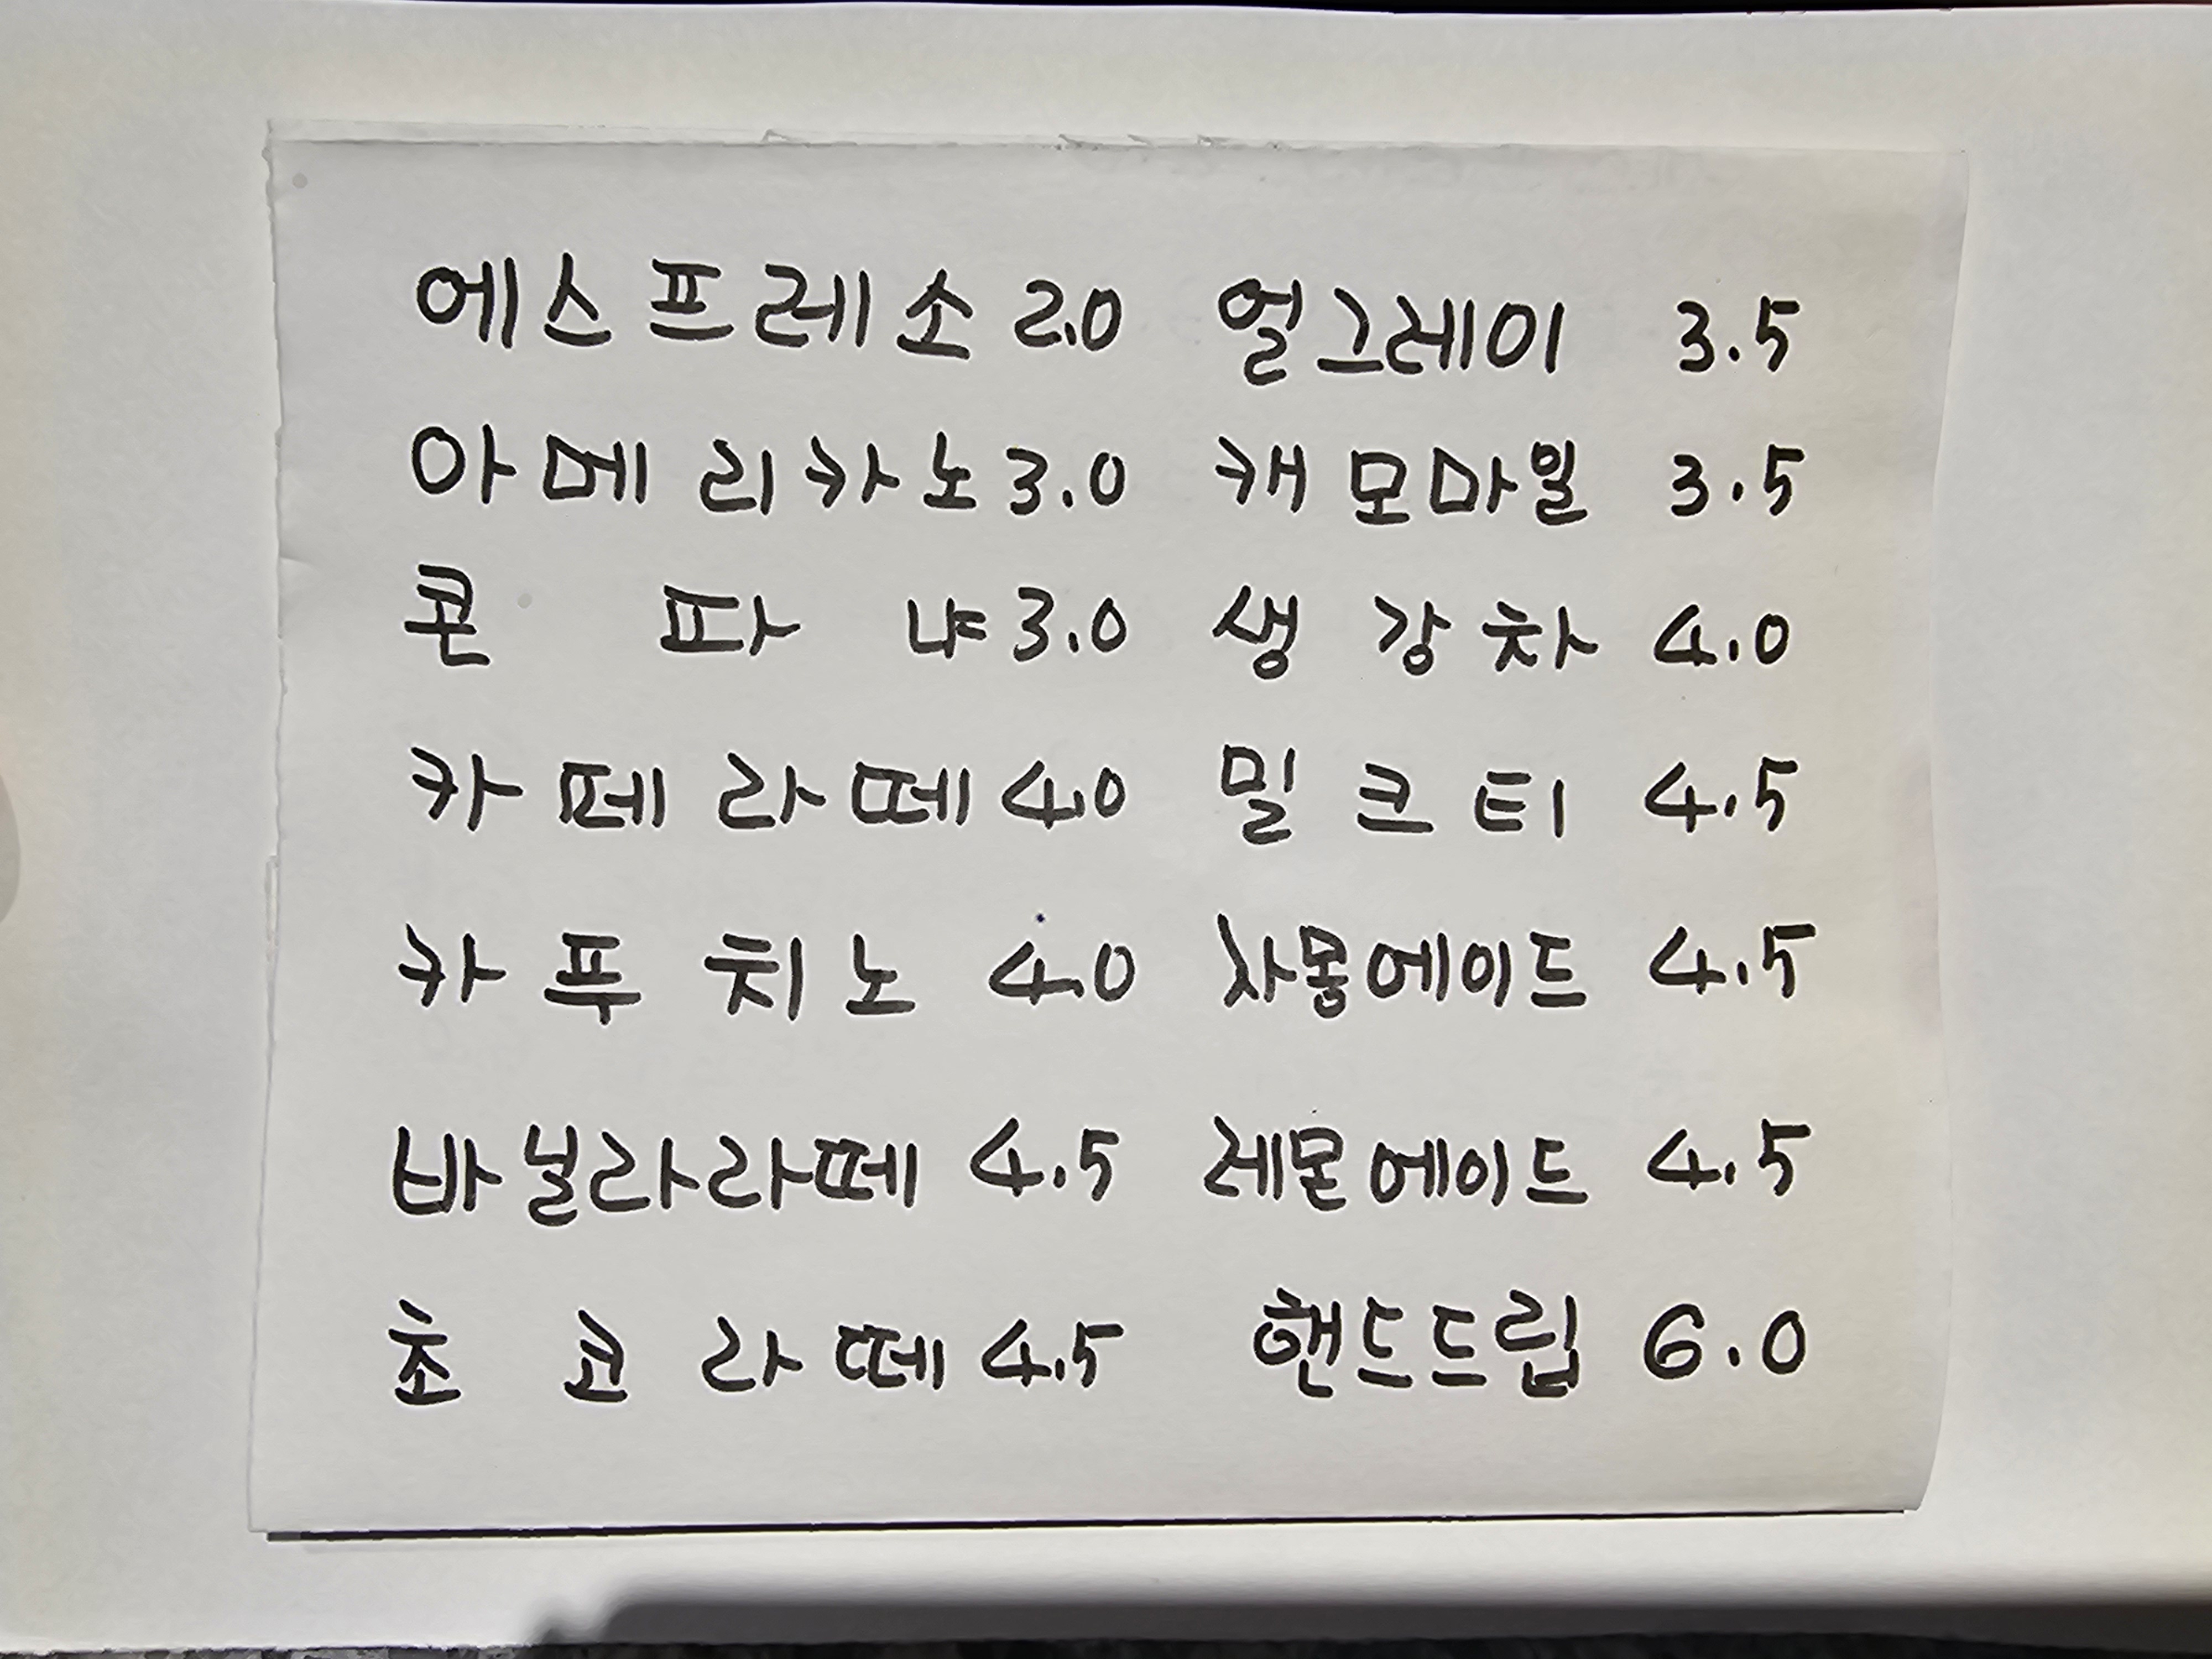 에스프레소 2.0 얼그레이 3.5
아메리카노 3.0 캐모마일 3.5
콘 파 냐 3.0 생 강 차 4.0
카 페 라 떼 4.0 밀 크 티 4.5
카 푸 치 노 4.0 자몽에이드 4.5
바닐라라떼 4.5 레몬에이드 4.5
초 코 라 떼 4.5 핸드드립 6.0